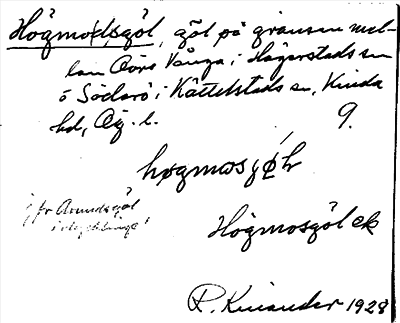 Högmossgöl, göl på gränsen mel-
lan Övre Vånga i Hägerstads sn
o Söderö i Kättilstads sn, Kinda
hd, Ög. l. 9.
Högmosgöl ek
jfr Arundsgöl
R. Kinander 1928